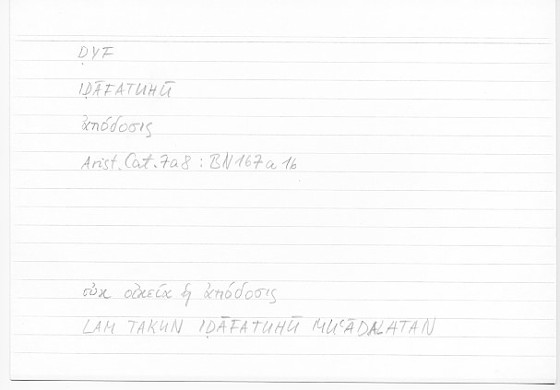 ḌYF
IḌĀFATUHŪ
ἀπόδοσις
Arist. Cat. 7a8 : BN 167a16
οὐκ οἰκεία ἡ ἀπόδοσις
LAM TAKUN IḌĀFATUHŪ MUʿĀDALATAN